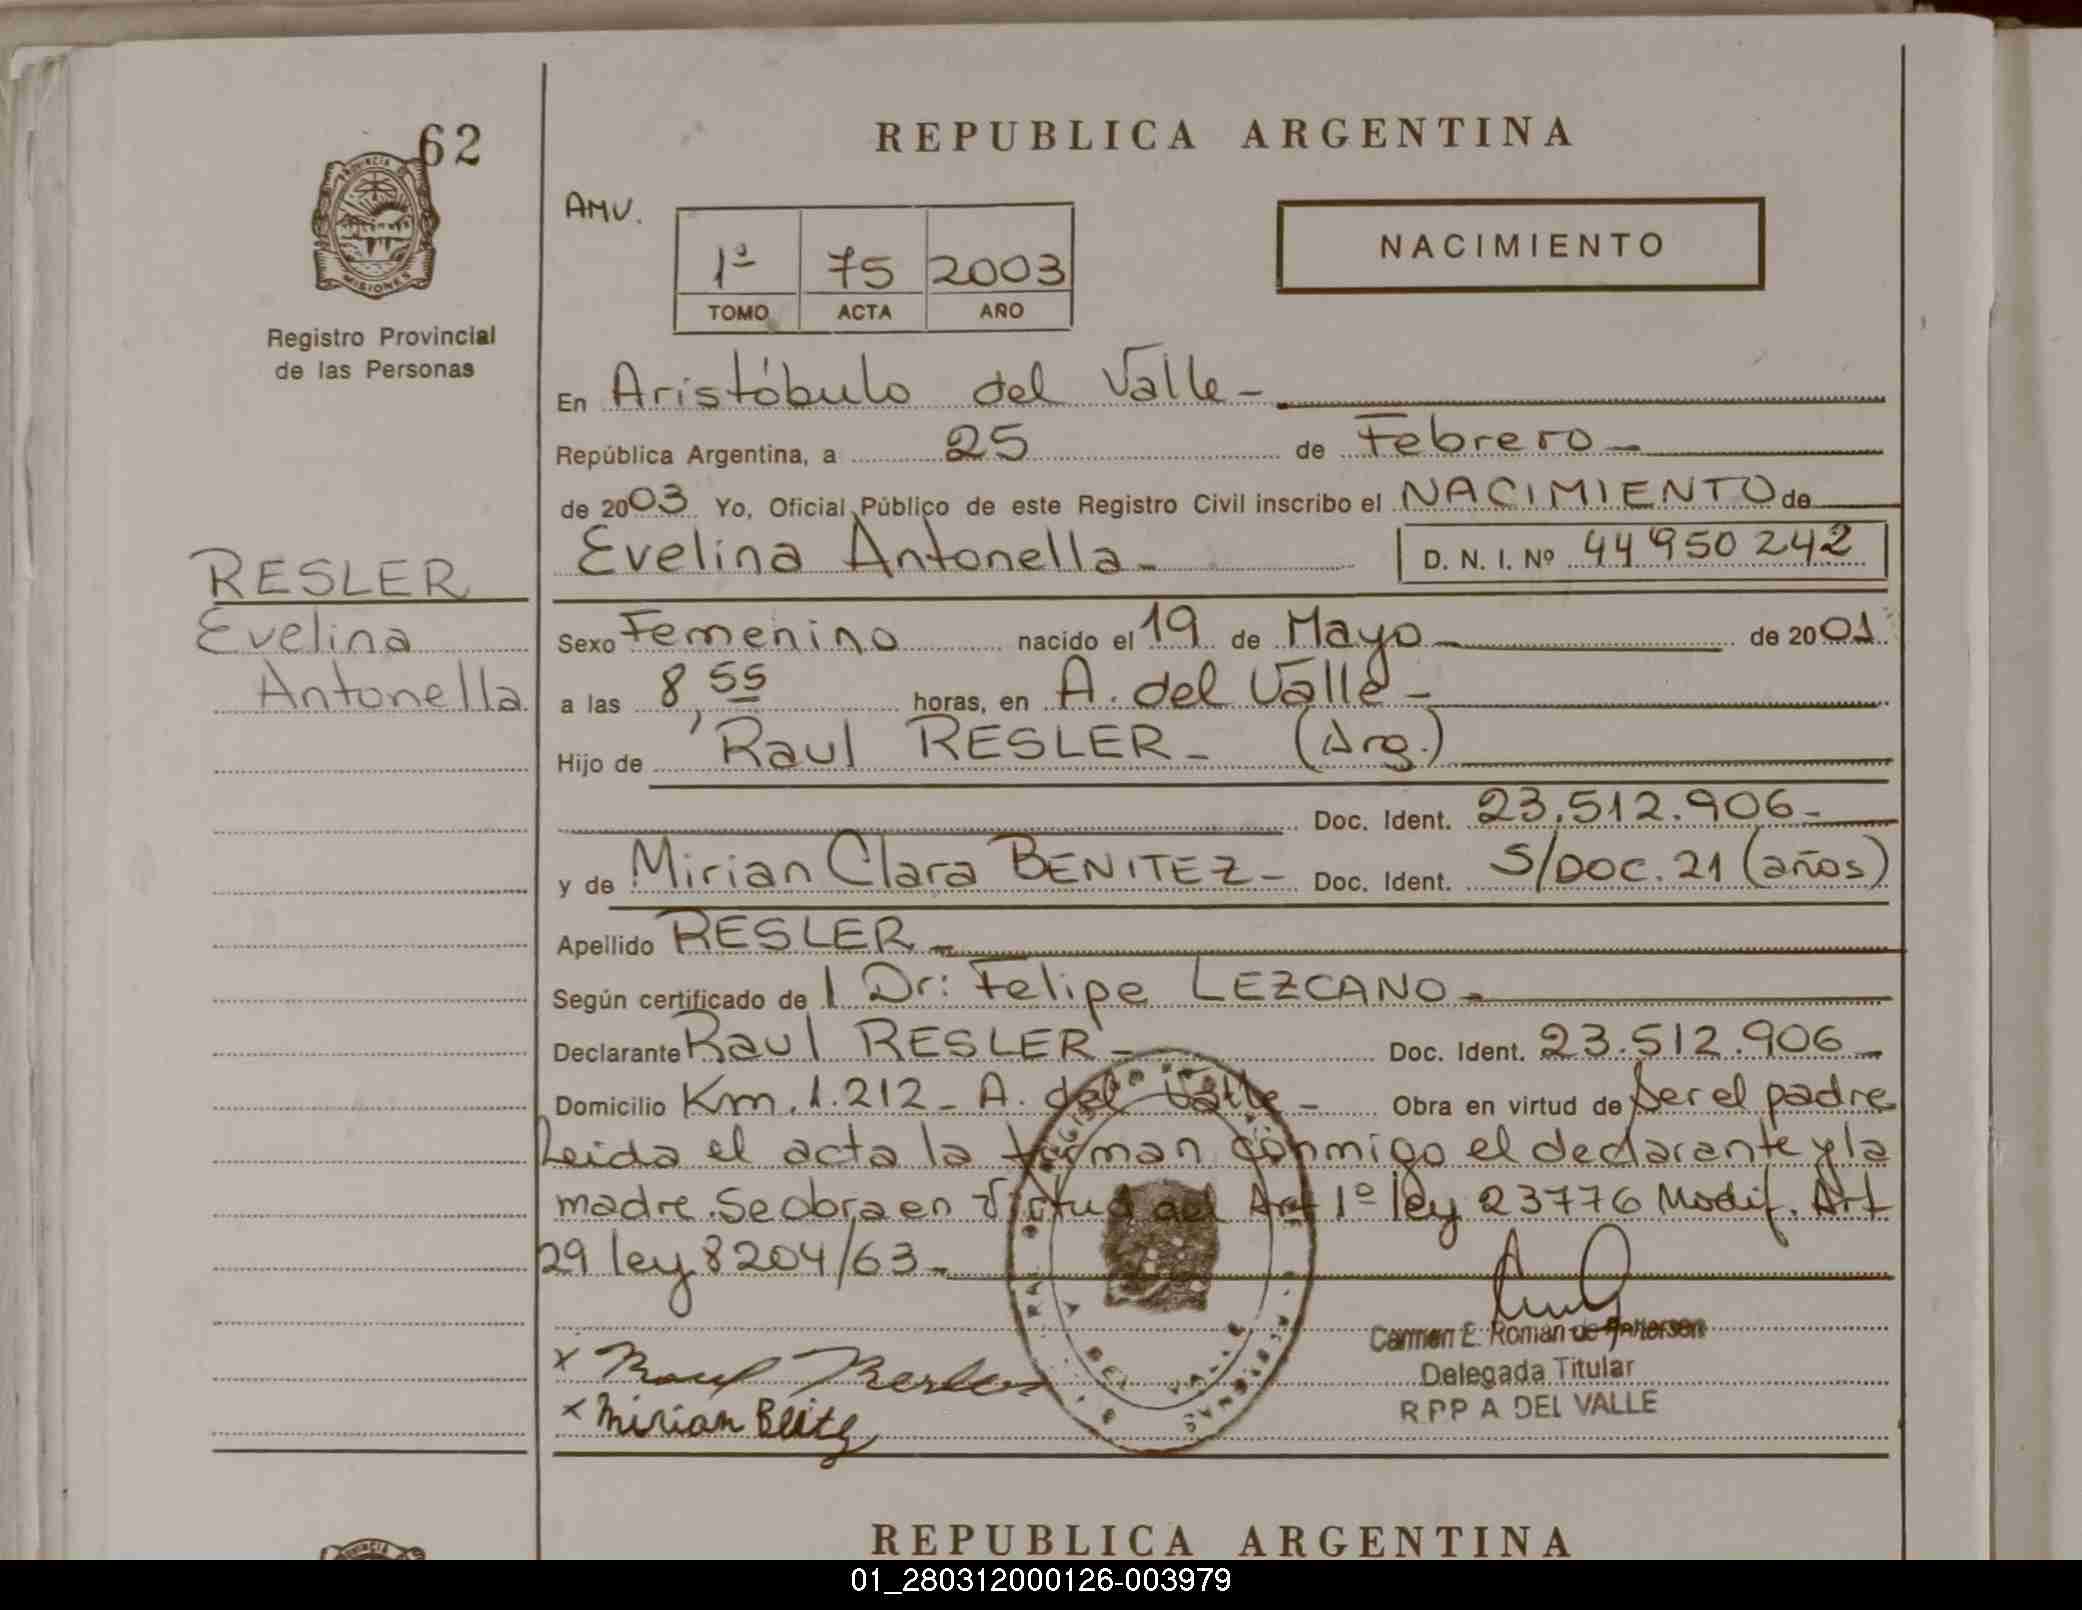 62
PROVINCIA DE
MISIONES
Registro Provincial
de las Personas
RESLER
Evelina
Antonella
REPUBLICA ARGENTINA
AMV.
1º 75 2003
TOMO ACTA AÑO
NACIMIENTO
En Aristóbulo del Valle-
República Argentina, a 25 de Febrero-
de 2003 Yo, Oficial Público de este Registro Civil inscribo el NACIMIENTO de
Evelina Antonella- D. N. I. Nº 44950242
Sexo Femenino nacido el 19 de Mayo- de 2001
a las 8,55 horas, en A. del Valle-
Hijo de Raul RESLER- (Arg.)
Doc. Ident. 23.512.906-
y de Mirian Clara BENITEZ- Doc. Ident. S/DOC. 21 (años)
Apellido RESLER-
Según certificado de l Dr: Felipe LEZCANO-
Declarante Raul RESLER- Doc. Ident. 23.512.906-
Domicilio Km. 1.212- A. del Valle- Obra en virtud de Ser el padre
Leida el acta la firman conmigo el declarante y la
madre. Se obra en virtud del Art 1º ley 23776 Modif. Art
29 ley 8204/63-
Carmen E. Roman de
Delegada Titular
R P P A DEL VALLE
x Raul Resler
x Mirian
REPUBLICA ARGENTINA
PROVINCIA
01_280312000126-003979